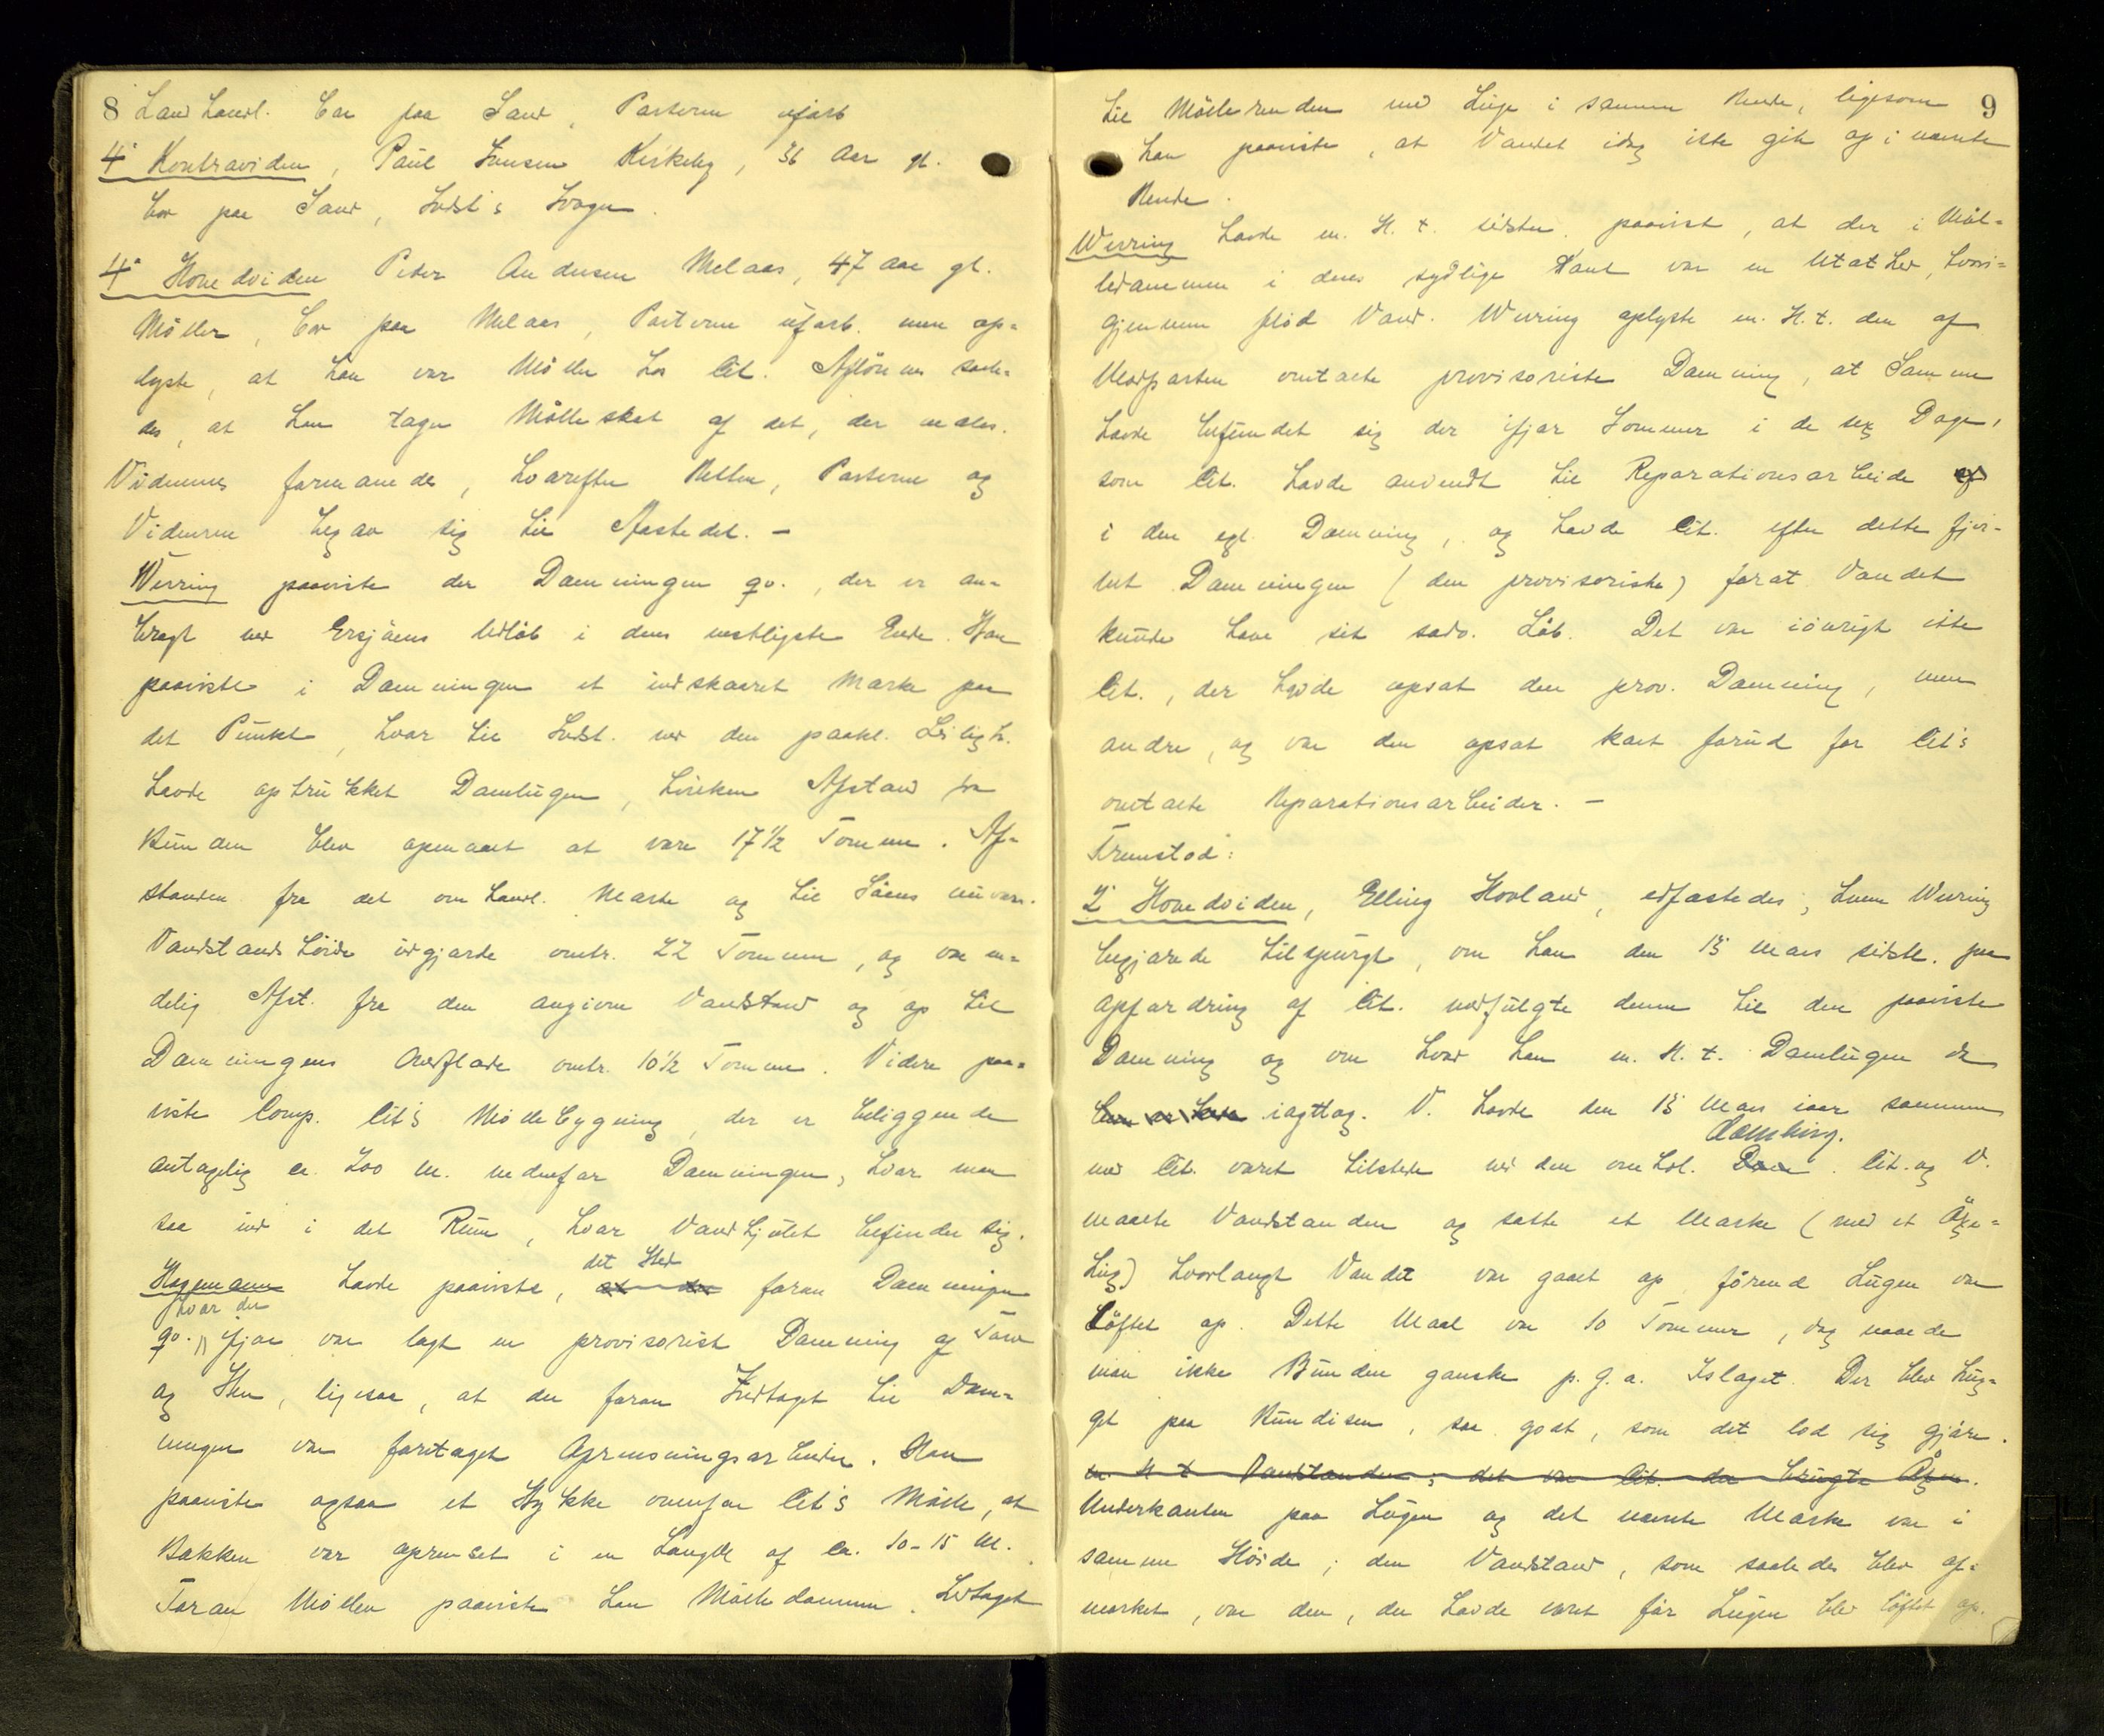 8 Landhandl. Bor paa Sand, Parterne ufarb
4' Kontravidne, Paul Jensen Kirkeby, 36 Aar gl.
bor paa Sand, Indst's Svoger.
4' Hovedvidne Peter Andersen Melaas, 47 Aar gl.
Møller, bor paa Melaas, Parterne ufarb. men op-
lyste, at han var Møller hos Cit. Aflønnes saale-
des, at han tager Mølleskat af det, der males.
Vidnernes formanedes, hvorefter Retten, Parterne og
Vidnerne begav sig til Aastedet. –
Werring paaviste der Dæmningen qv., der er an-
bragt ved Ersjøens Udløb i dens vestligste Ende. Han
paaviste i Dæmningen et indskaaret Mærke paa
det Punkt, hvor til Indst. ved den paakl. Leiligh.
havde optrukket Damlugen, hvilken Afstand fra
Bunden blev opmaalt at være 17 1/2 Tomme. Af-
standen fra det omhandl. Mærke og til Søens nuvær.
Vandstands Høide udgjorde omtr. 22 Tommer, og var en-
delig Afst. fra den angivne Vandstand og op til
Dæmningens Overflade omtr. 10 1/2 Tomme. Videre paa-
viste Comp. Cit's Møllebygning, der er beliggende
antagelig ca. 200 M. nedenfor Dæmningen, hvor man
saa ind i det Rum, hvor Vandhjulet befinder sig.
det Sted
Hagemann havde paavist, at der foran Dæmningen
hvor der
qv. ifjor var lagt en provisorisk Dæmning af Torv
og Sten, ligesaa, at der foran Indtaget til Dæm-
ningen var foretaget Oprensningsarbeider. Han
paaviste ogsaa et Stykke ovenfor Cit's Mølle, at
Bækken var oprenset i en Længde af ca. 10–15 M.
Foran Møllen paaviste han Mølledammen. Udtaget
9
til Møllerenden med Luge i samme Rende, ligesom
han paaviste, at Vandet idag ikke gik op i nævnte
Rende.
Werring havde m. H. t. sidste paavist, at der i Møl-
ledammen i dens sydlige Kant var en Utæthed, hvori-
gjennem flød Vand. Werring oplyste m. H. t. den af
Modparten omtalte provisoriske Dæmning, at Samme
havde befundet sig der ifjor Sommer i de sex Dage,
som Cit. havde anvendt til Reparationsarbeide
i den egl. Dæmning, og havde Cit. efter dette fjer-
net Dæmningen (den provisoriske) forat Vandet
kunde have sit sædv. Løb. Det var iøvrigt ikke
Cit., der havde opsat den prov. Dæmning, men
andre, og var den opsat kort forud for Cit's
omtalte Reparationsarbeider. –
Fremstod:
2' Hovedvidne, Elling Hovland, edfæstedes; hvem Werring
begjærede tilspurgt, om han den 15 Mars sidstl. paa
Opfordring af Cit. medfulgte denne til den paaviste
Dæmning og om hvad han m. H. t. Damlugen da
iagttog. V. havde den 15 Mars iaar sammen
Dæmning.
med Cit. været tilstede ved den omhdl. Dam. Cit. og V.
maalte Vandstanden og satte et Mærke (med et Øxe-
hug) hvorlangt Vandet var gaaet op, førend Lugen var
løftet op. Dette Maal var 10 Tommer, dog naaede
man ikke Bunden ganske p. g. a. Islaget. Der blev hug-
get paa Bundisen, saa godt, som det lod sig gjøre.
m. H. t. Vandstanden; det var Cit. der brugte Øxen.
Underkanten paa Lugen og det nævnte Mærke var i
samme Høide; den Vandstand, som saaledes blev af-
mærket, var den, der havde været før Lugen blev løftet op.